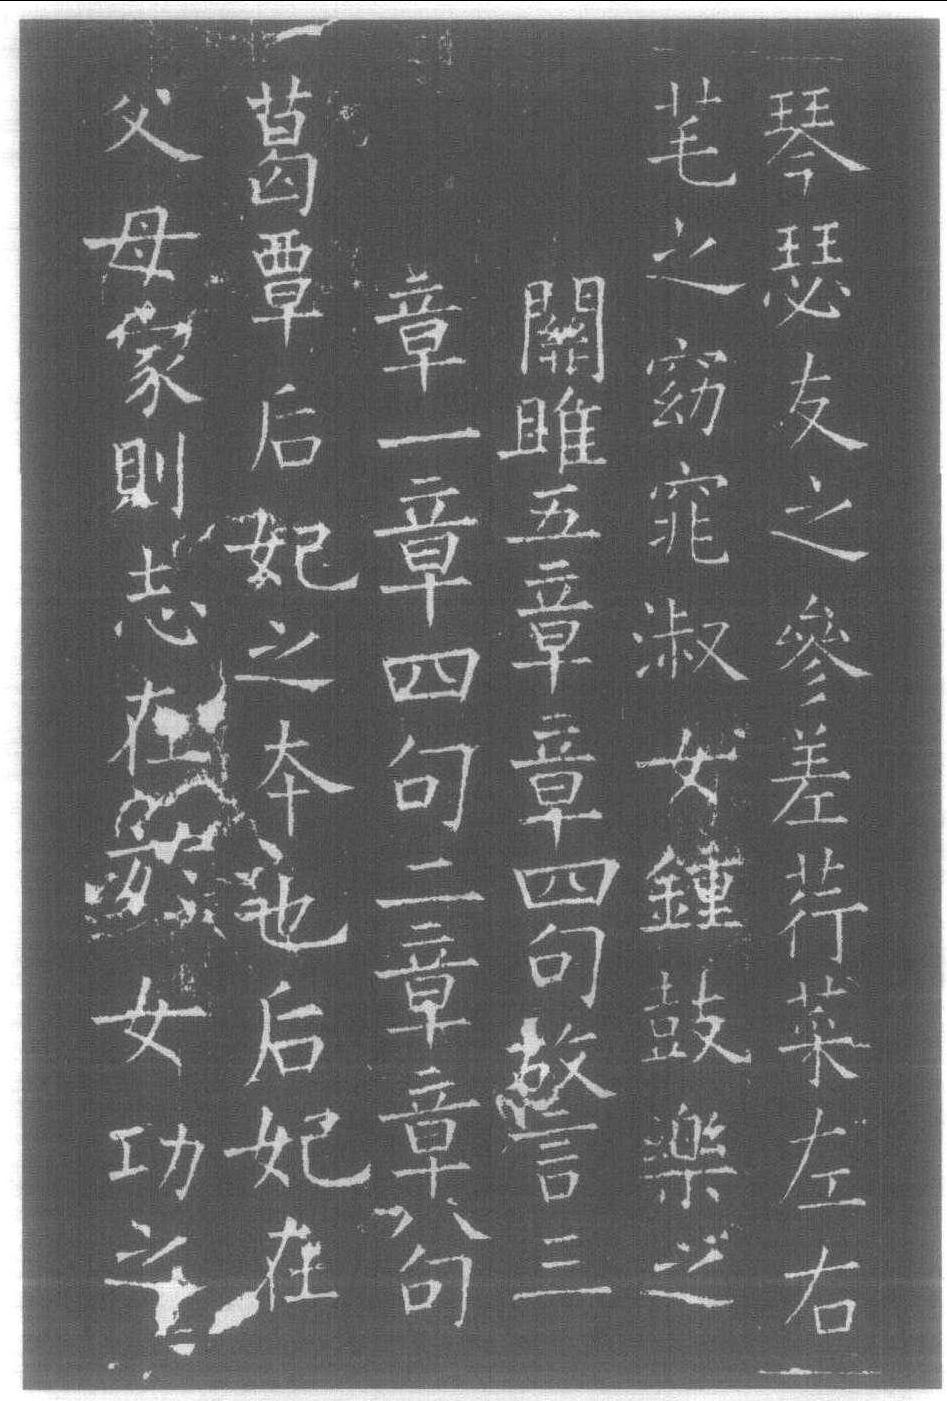 琴瑟友之參差荇菜左右
芼之窈窕淑女鍾鼓樂之
關雎五章章四句故言三
章一章四句二章章八句
葛覃后妃之本也后妃在
父母家則志在女功之